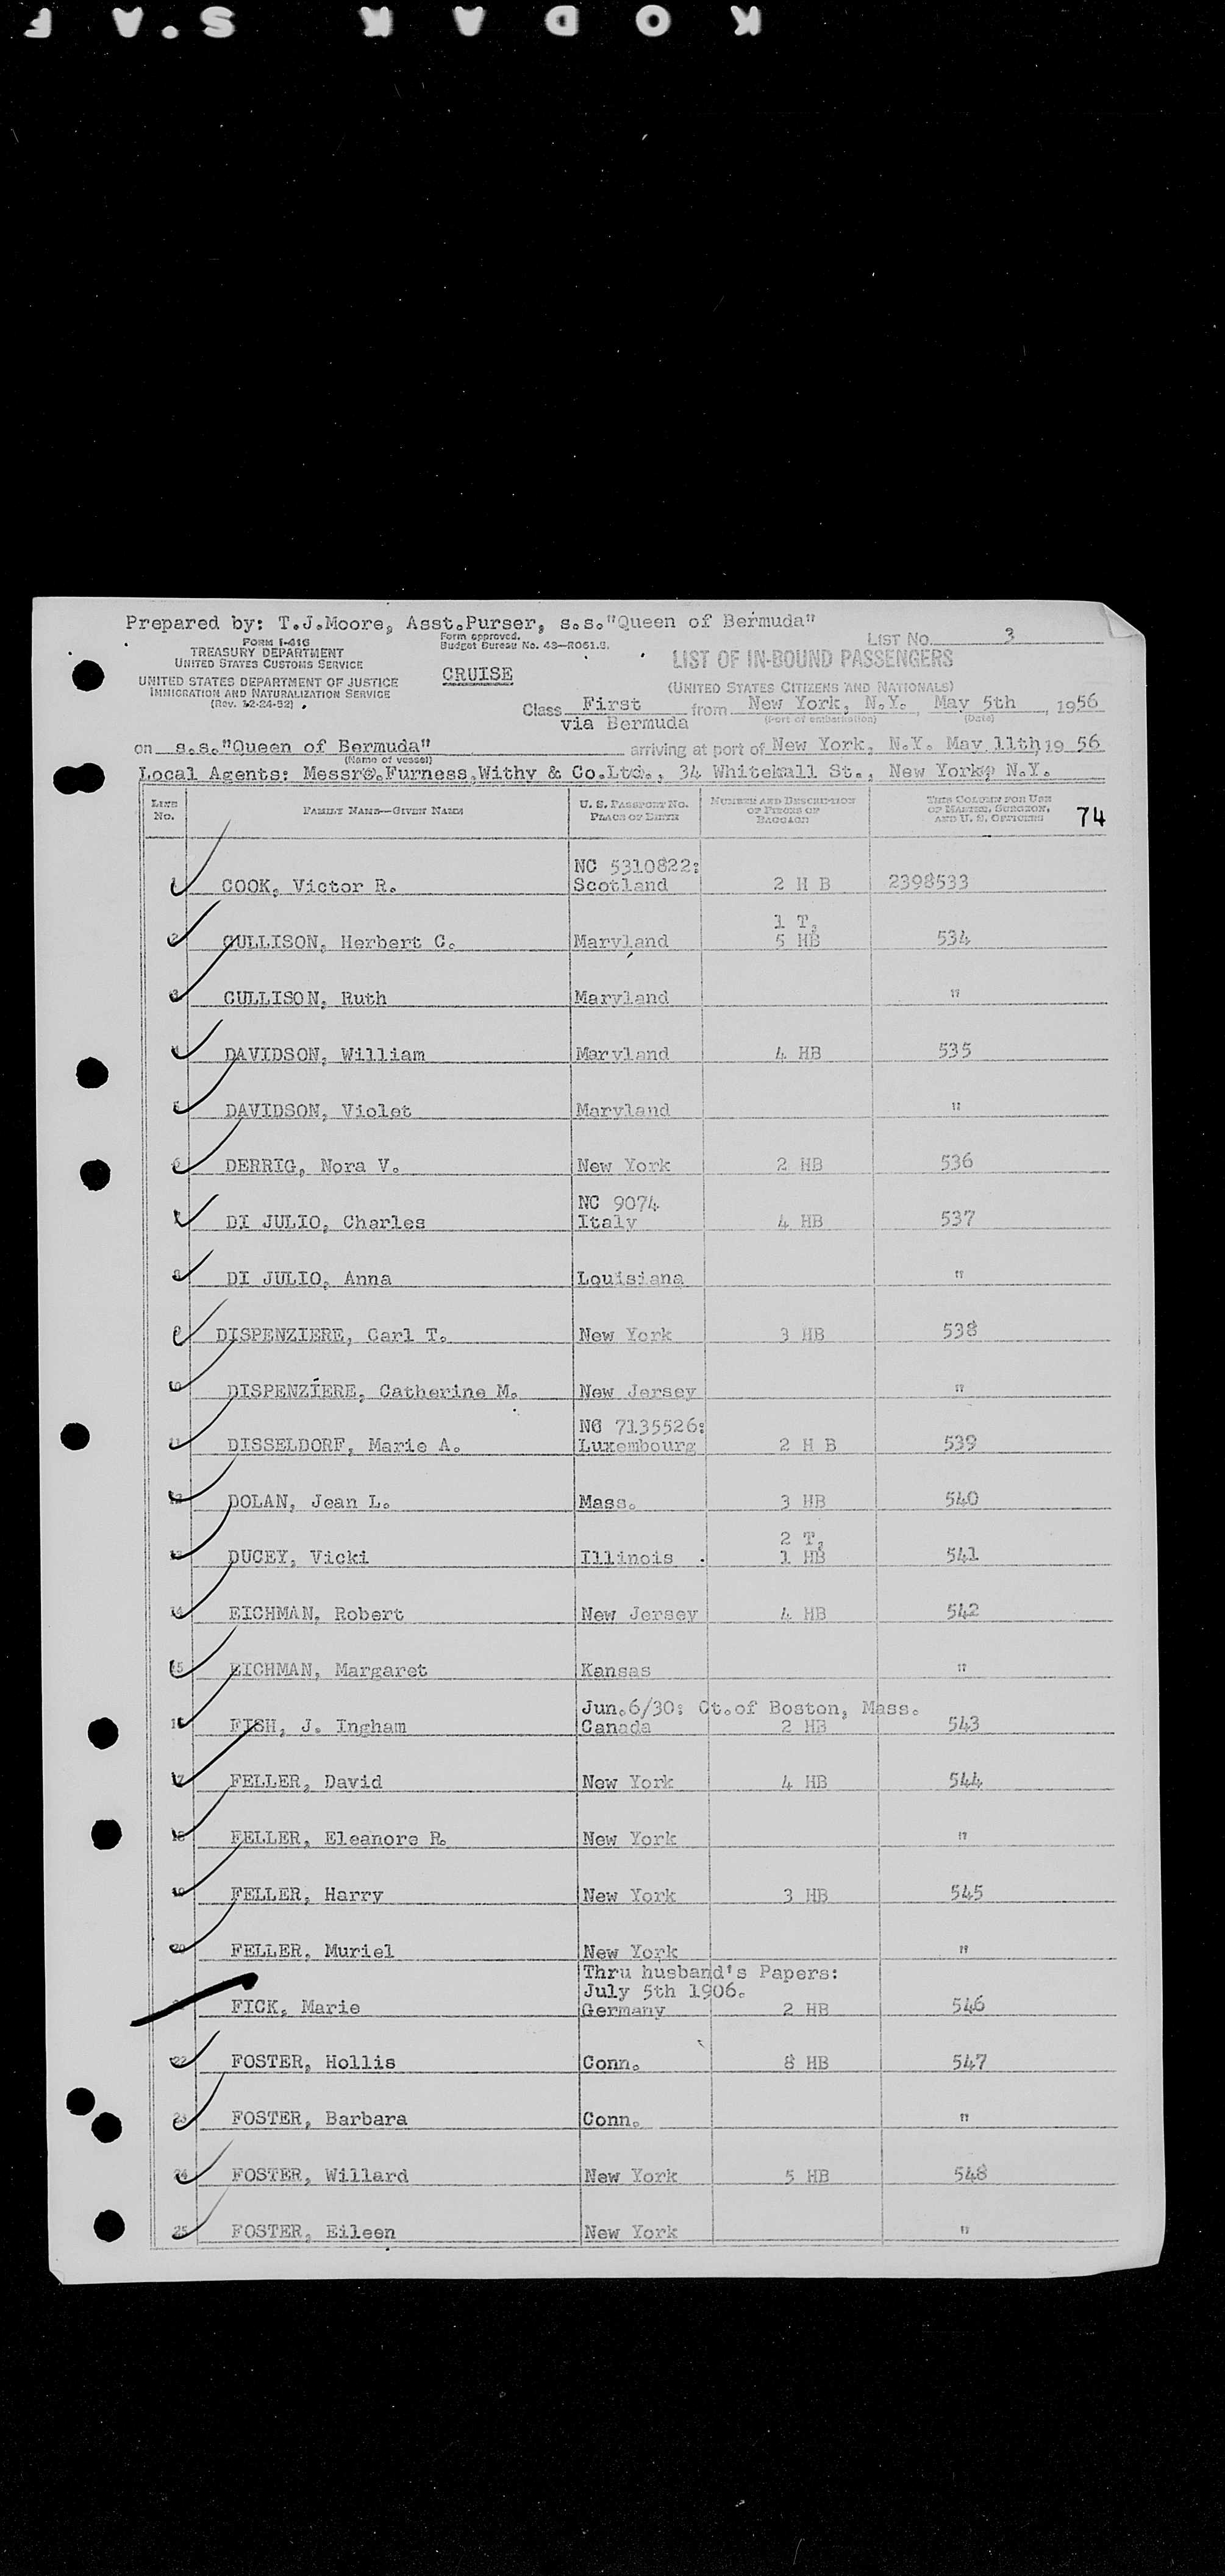 KODAK S.A F
Prepared by: T.J.Moore, Asst.Purser, s.s."Queen of Bermuda"
FORM I-416
TREASURY DEPARTMENT
UNITED STATES CUSTOMS SERVICE
UNITED STATES DEPARTMENT OF JUSTICE
IMMIGRATION AND NATURALIZATION SERVICE
(Rev. 12-24-52)
Form approved.
Budget Bureau No. 43-R061.3.
CRUISE
LIST No. 3
LIST OF IN-BOUND PASSENGERS
(UNITED STATES CITIZENS AND NATIONALS)
Class First from New York, N.Y., May 5th, 1956
via Bermuda (Port of embarkation) (Date)
on s.s."Queen of Bermuda" arriving at port of New York, N.Y. May 11th 19 56
(Name of vessel)
Local Agents: Messrs.Furness,Withy & Co.Ltd., 34 Whitehall St., New York, N.Y.
LINE No. FAMILY NAME—GIVEN NAME U. S. PASSPORT NO. PLACE OF BIRTH NUMBER AND DESCRIPTION OF PIECES OF BAGGAGE THIS COLUMN FOR USE OF MASTER, SURGEON, AND U. S. OFFICERS 74
NC 5310822:
1 COOK, Victor R. Scotland 2 H B 2398533
1 T,
2 CULLISON, Herbert C. Maryland 5 HB 534
3 CULLISON, Ruth Maryland "
4 DAVIDSON, William Maryland 4 HB 535
5 DAVIDSON, Violet Maryland "
6 DERRIG, Nora V. New York 2 HB 536
NC 9074
7 DI JULIO, Charles Italy 4 HB 537
8 DI JULIO, Anna Louisiana "
9 DISPENZIERE, Carl T. New York 3 HB 538
10 DISPENZIERE, Catherine M. New Jersey "
NC 7135526:
11 DISSELDORF, Marie A. Luxembourg 2 H B 539
12 DOLAN, Jean L. Mass. 3 HB 540
2 T,
13 DUCEY, Vicki Illinois 1 HB 541
14 EICHMAN, Robert New Jersey 4 HB 542
15 EICHMAN, Margaret Kansas "
Jun.6/30: Ct.of Boston, Mass.
16 FISH, J. Ingham Canada 2 HB 543
17 FELLER, David New York 4 HB 544
18 FELLER, Eleanore R. New York "
19 FELLER, Harry New York 3 HB 545
20 FELLER, Muriel New York "
Thru husband's Papers:
July 5th 1906.
21 FICK, Marie Germany 2 HB 546
22 FOSTER, Hollis Conn. 8 HB 547
23 FOSTER, Barbara Conn. "
24 FOSTER, Willard New York 5 HB 548
25 FOSTER, Eileen New York "